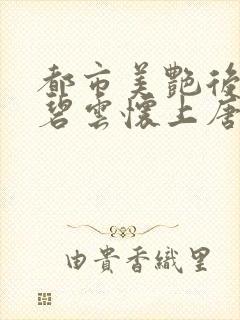 都市美艷後
碧雲懷上唐
由貴香織里